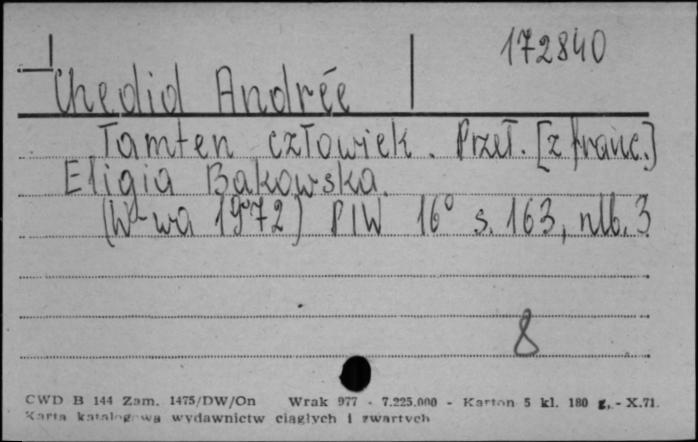 172840
Chedid Andrée
Tamten człowiek. Przeł. [z franc.]
Eligia Bąkowska.
(W-wa 1972) PIW 16° s. 163, nlb. 3
8
CWD B 144 Zam. 1475/DW/On Wrak 977 - 7.225.000 - Karton 5 kl. 180 g. - X.71.
Karta katalogowa wydawnictw ciągłych i zwartych